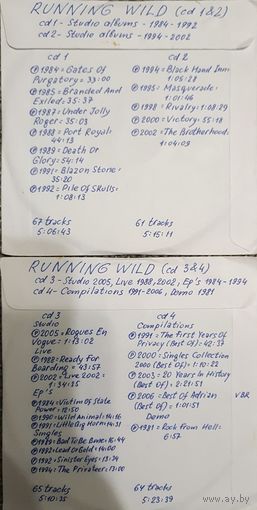 RUNNING WILD (cd 1&2)
cd 1 - Studio albums - 1984-1992
cd 2 - Studio albums - 1994-2002
cd 1
℗ 1984 = Gates Of
Purgatory = 33:00
℗ 1985 = Branded And
Exiled = 35:37
℗ 1987 = Under Jolly
Roger = 35:03
℗ 1988 = Port Royal =
44:13
℗ 1989 = Death Or
Glory = 54:14
℗ 1991 = Blazon Stone =
35:20
℗ 1992 = Pile Of Skulls =
1:08:13
67 tracks
5:06:43
cd 2
℗ 1994 = Black Hand Inn =
1:05:28
℗ 1995 = Masquerade =
1:01:46
℗ 1998 = Rivalry = 1:08:29
℗ 2000 = Victory = 55:18
℗ 2002 = The Brotherhood =
1:04:09
61 tracks
5:15:11
RUNNING WILD (cd 3&4)
cd 3 - Studio 2005, Live 1988, 2002, Ep's 1984-1994
cd 4 - Compilations 1991-2006, Demo 1981
cd 3
Studio
℗ 2005 = Rogues En
Vogue = 1:13:02
Live
℗ 1988 = Ready For
Boarding = 43:57
℗ 2002 = Live 2002 =
1:34:35
Ep's
℗ 1984 = Victim Of State
Power = 12:50
℗ 1990 = Wild Animal = 14:56
℗ 1991 = Little Big Horn = 14:31
Singles
℗ 1989 = Bad To The Bone = 16:44
℗ 1992 = Lead Or Gold = 14:00
℗ 1992 = Sinister Eyes = 13:24
℗ 1994 = The Privateer = 13:00
65 tracks
5:10:35
cd 4
Compilations
℗ 1991 = The First Years Of
Privacy (Best Of) = 42:37
℗ 2000 = Singles Collection
2000 (Best Of) = 1:10:22
℗ 2003 = 20 Years In History
(Best Of) = 2:21:51
℗ 2006 = Best Of Adrian
(Best Of) = 1:01:51
VBR
Demo
℗ 1981 = Rock From Hell =
6:57
64 tracks
5:23:39
www.ay.by